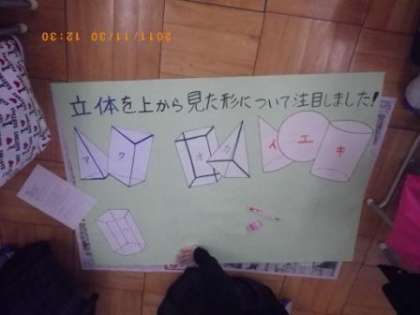 2011/11/30 12:30
立体を上から見た形について注目しました!
ア ク オ カ イ エ キ